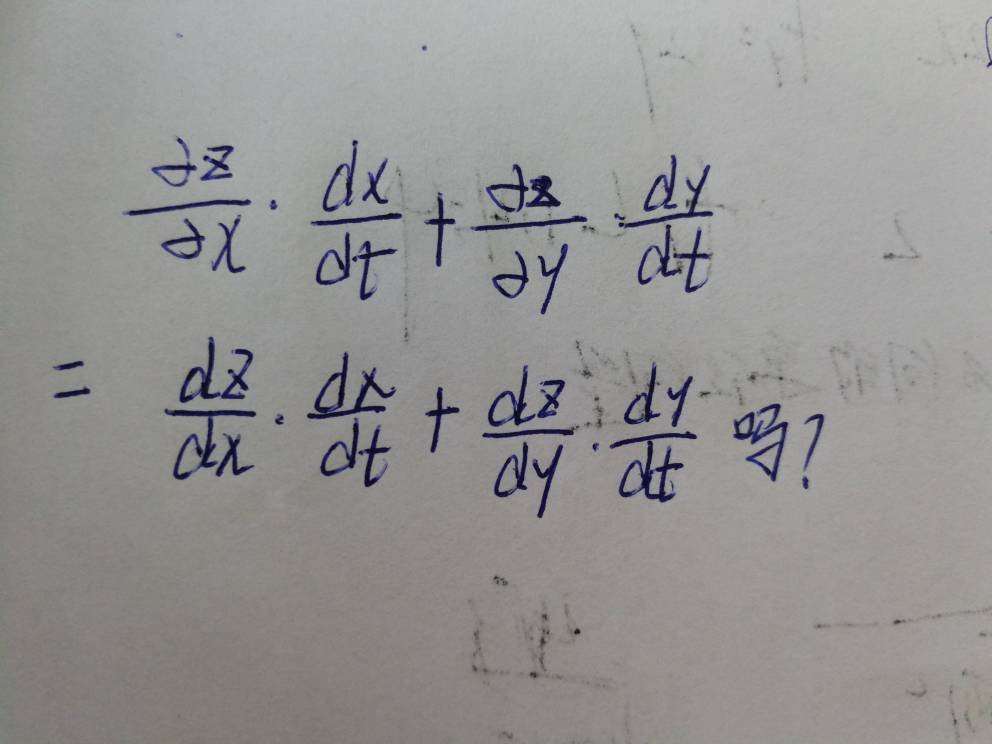 ∂z/∂x · dx/dt + ∂z/∂y · dy/dt
= dz/dx · dx/dt + dz/dy · dy/dt 吗?